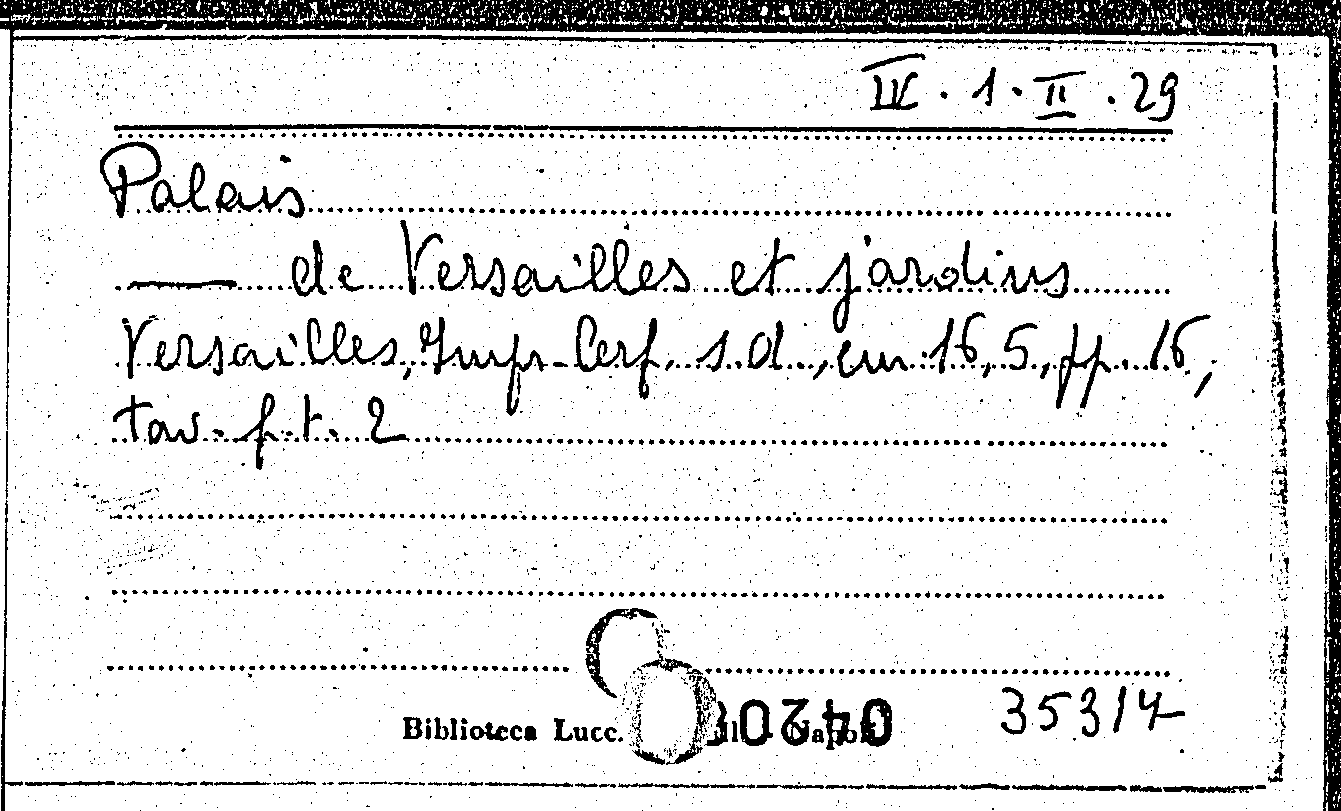 IV. 1. II. 29
Palais
— de Versailles et jardins
Versailles, Impr. Cerf. s.d., cm. 16,5, pp. 16,
tav. f. t. 2
Biblioteca Lucc.
35314